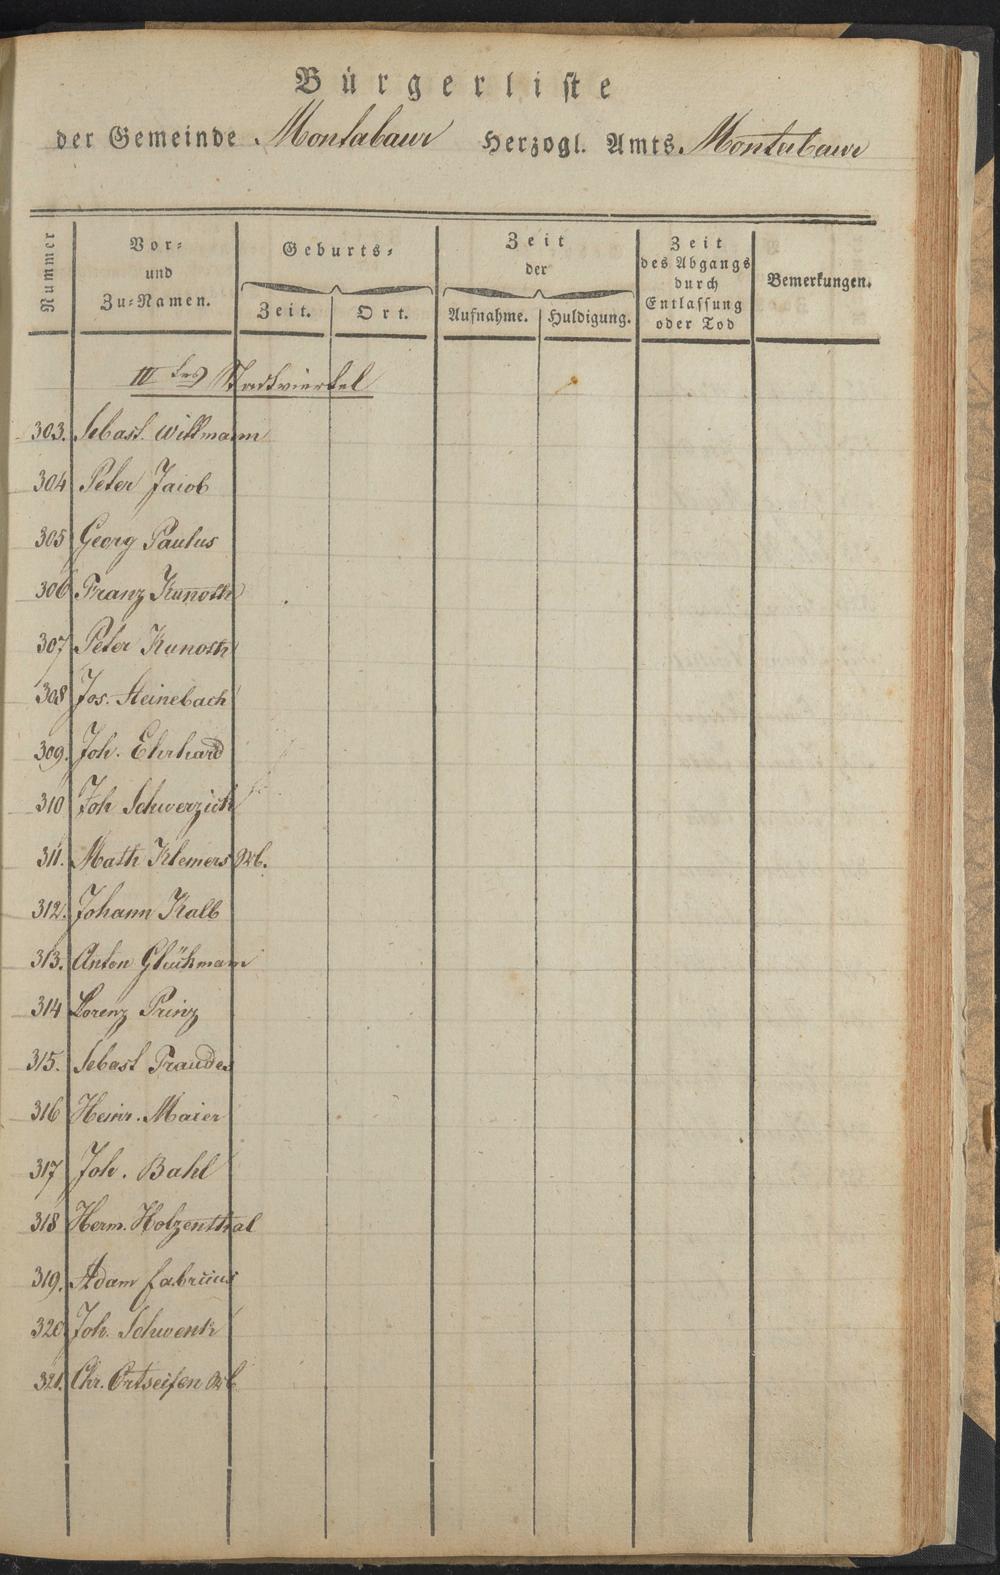 Bürgerliste
der Gemeinde Montabaur Herzogl. Amts. Montabaur
Nummer
Vor-
und
Zu-Namen.
Geburts-
Zeit.
Ort.
Zeit
der
Aufnahme.
Huldigung.
Zeit
des Abgangs
durch
Entlassung
oder Tod
Bemerkungen.
IV tes Stadtviertel
303. Sebast. Willmann
304 Peter Jacob
305 Georg Paulus
306 Franz Kunoth
307 Peter Kunoth
308 Jos. Steinebach
309. Joh. Ehrhard
310 Joh Schwerzich
311. Math Klemers Wb.
312. Johann Kalb
313. Anton Glückmann
314 Lorenz Prinz
315. Sebast
316 Heinr. Maier
317 Joh. Bahl
318 Herm. Holzenthal
319. Adam Fabricius
320 Joh. Schwenk
321. Chr. Ortseifen Wb